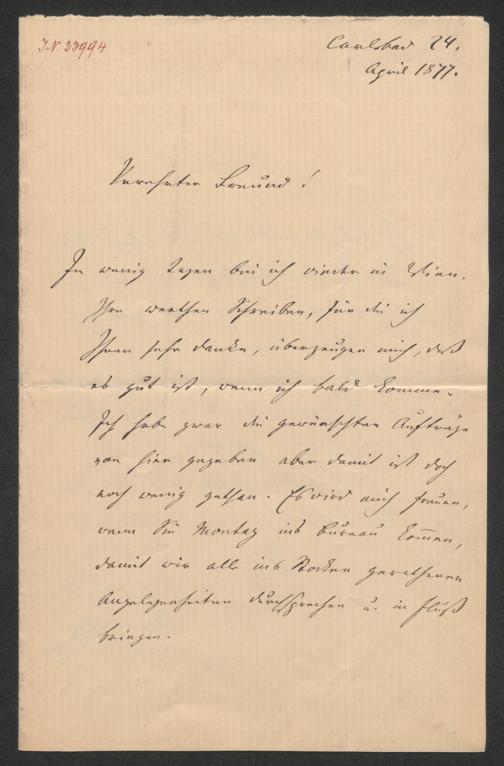 I.N. 23994
Carlsbad 24.
April 1877.
Verehrter Freund!
In wenig Tagen bin ich wieder in Wien.
Ihre werthen Schreiben, für die ich
Ihnen sehr danke, überzeugen mich, daß
es gut ist, wenn ich bald komme.
Ich habe zwar die gewünschten Aufträge
von hier gegeben aber damit ist doch
noch wenig gethan. Es wird mich freuen,
wenn Sie Montag ins Bureau kom̄en,
damit wir alle ins Stocken gerathenen
Angelegenheiten durchsprechen u. in Fluß
bringen.